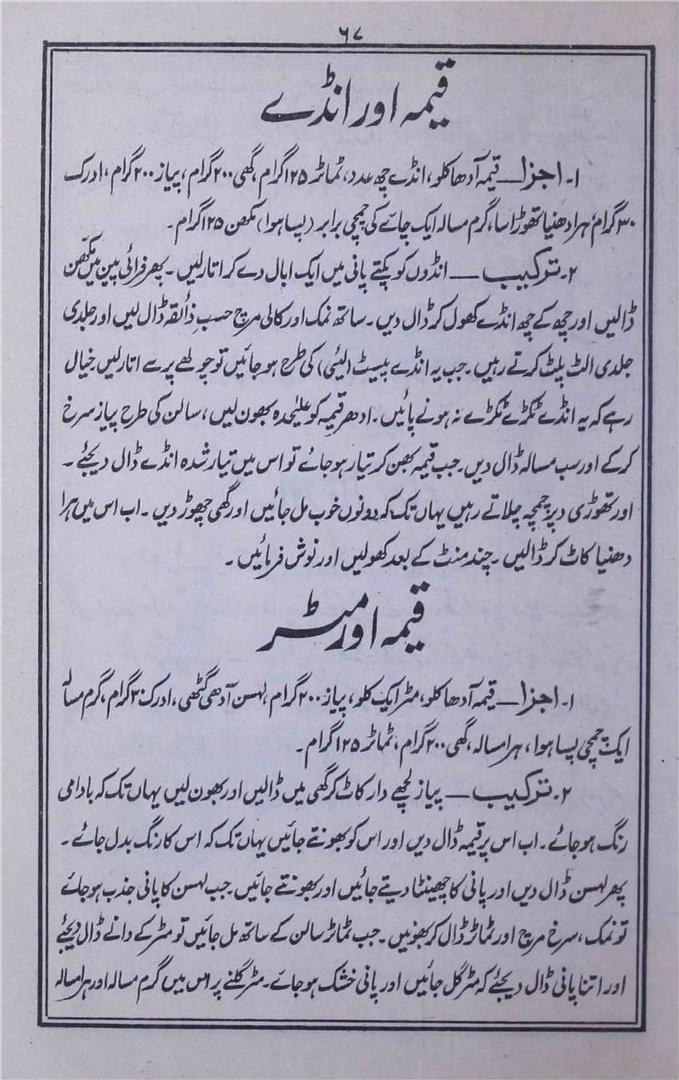 ۶۷
قیمہ اور انڈے
۱۔ اجزا ــ قیمہ آدھا کلو، انڈے چھ عدد، ٹماٹر ۱۲۵ گرام، گھی ۲۰۰ گرام، پیاز ۲۰۰ گرام، ادرک
۳۰ گرام، ہرا دھنیا تھوڑا سا، گرم مسالہ ایک چائے کی چمچی برابر (پسا ہوا) مکھن ۱۲۵ گرام۔
۲۔ ترکیب ــ انڈوں کو پکتے پانی میں ایک ابال دے کر اتار لیں۔ پھر فرائی پین میں مکھن
ڈالیں اور چھ کے چھ انڈے کھول کر ڈال دیں۔ ساتھ نمک اور کالی مرچ حسب ذائقہ ڈال لیں اور جلدی
جلدی الٹ پلٹ کرتے رہیں۔ جب یہ انڈے پیسٹ (لیئی) کی طرح ہو جائیں تو چولھے پر سے اتار لیں۔ خیال
رہے کہ یہ انڈے ٹکڑے ٹکڑے نہ ہونے پائیں۔ ادھر قیمہ کو علیٰحدہ بھون لیں، سالن کی طرح پیاز سرخ
کر کے اور سب مسالہ ڈال دیں۔ جب قیمہ بھن کر تیار ہو جائے تو اس میں تیار شدہ انڈے ڈال دیجئے۔
اور تھوڑی دیر چمچہ چلاتے رہیں یہاں تک کہ دونوں خوب مل جائیں اور گھی چھوڑ دیں۔ اب اس میں ہرا
دھنیا کاٹ کر ڈالیں۔ چند منٹ کے بعد کھولیں اور نوش فرمائیں۔
قیمہ اور مٹر
۱۔ اجزا ــ قیمہ آدھا کلو، مٹر ایک کلو، پیاز ۲۰۰ گرام، لہسن آدھی گٹھی، ادرک ۳۰ گرام، گرم مسالہ
ایک چمچی پسا ہوا، ہرا مسالہ، گھی ۲۰۰ گرام، ٹماٹر ۱۲۵ گرام۔
۲۔ ترکیب ــ پیاز لچھے دار کاٹ کر گھی میں ڈالیں اور بھون لیں یہاں تک کہ بادامی
رنگ ہو جائے۔ اب اس پر قیمہ ڈال دیں اور اس کو بھونتے جائیں یہاں تک کہ اس کا رنگ بدل جائے۔
پھر لہسن ڈال دیں اور پانی کا چھینٹا دیتے جائیں اور بھونتے جائیں۔ جب لہسن کا پانی جذب ہو جائے
تو نمک، سرخ مرچ اور ٹماٹر ڈال کر بھونیں۔ جب ٹماٹر سالن کے ساتھ مل جائیں تو مٹر کے دانے ڈال دیجئے
اور اتنا پانی ڈال دیجئے کہ مٹر گل جائیں اور پانی خشک ہو جائے۔ مٹر گلنے پر اس میں گرم مسالہ اور ہرا مسالہ